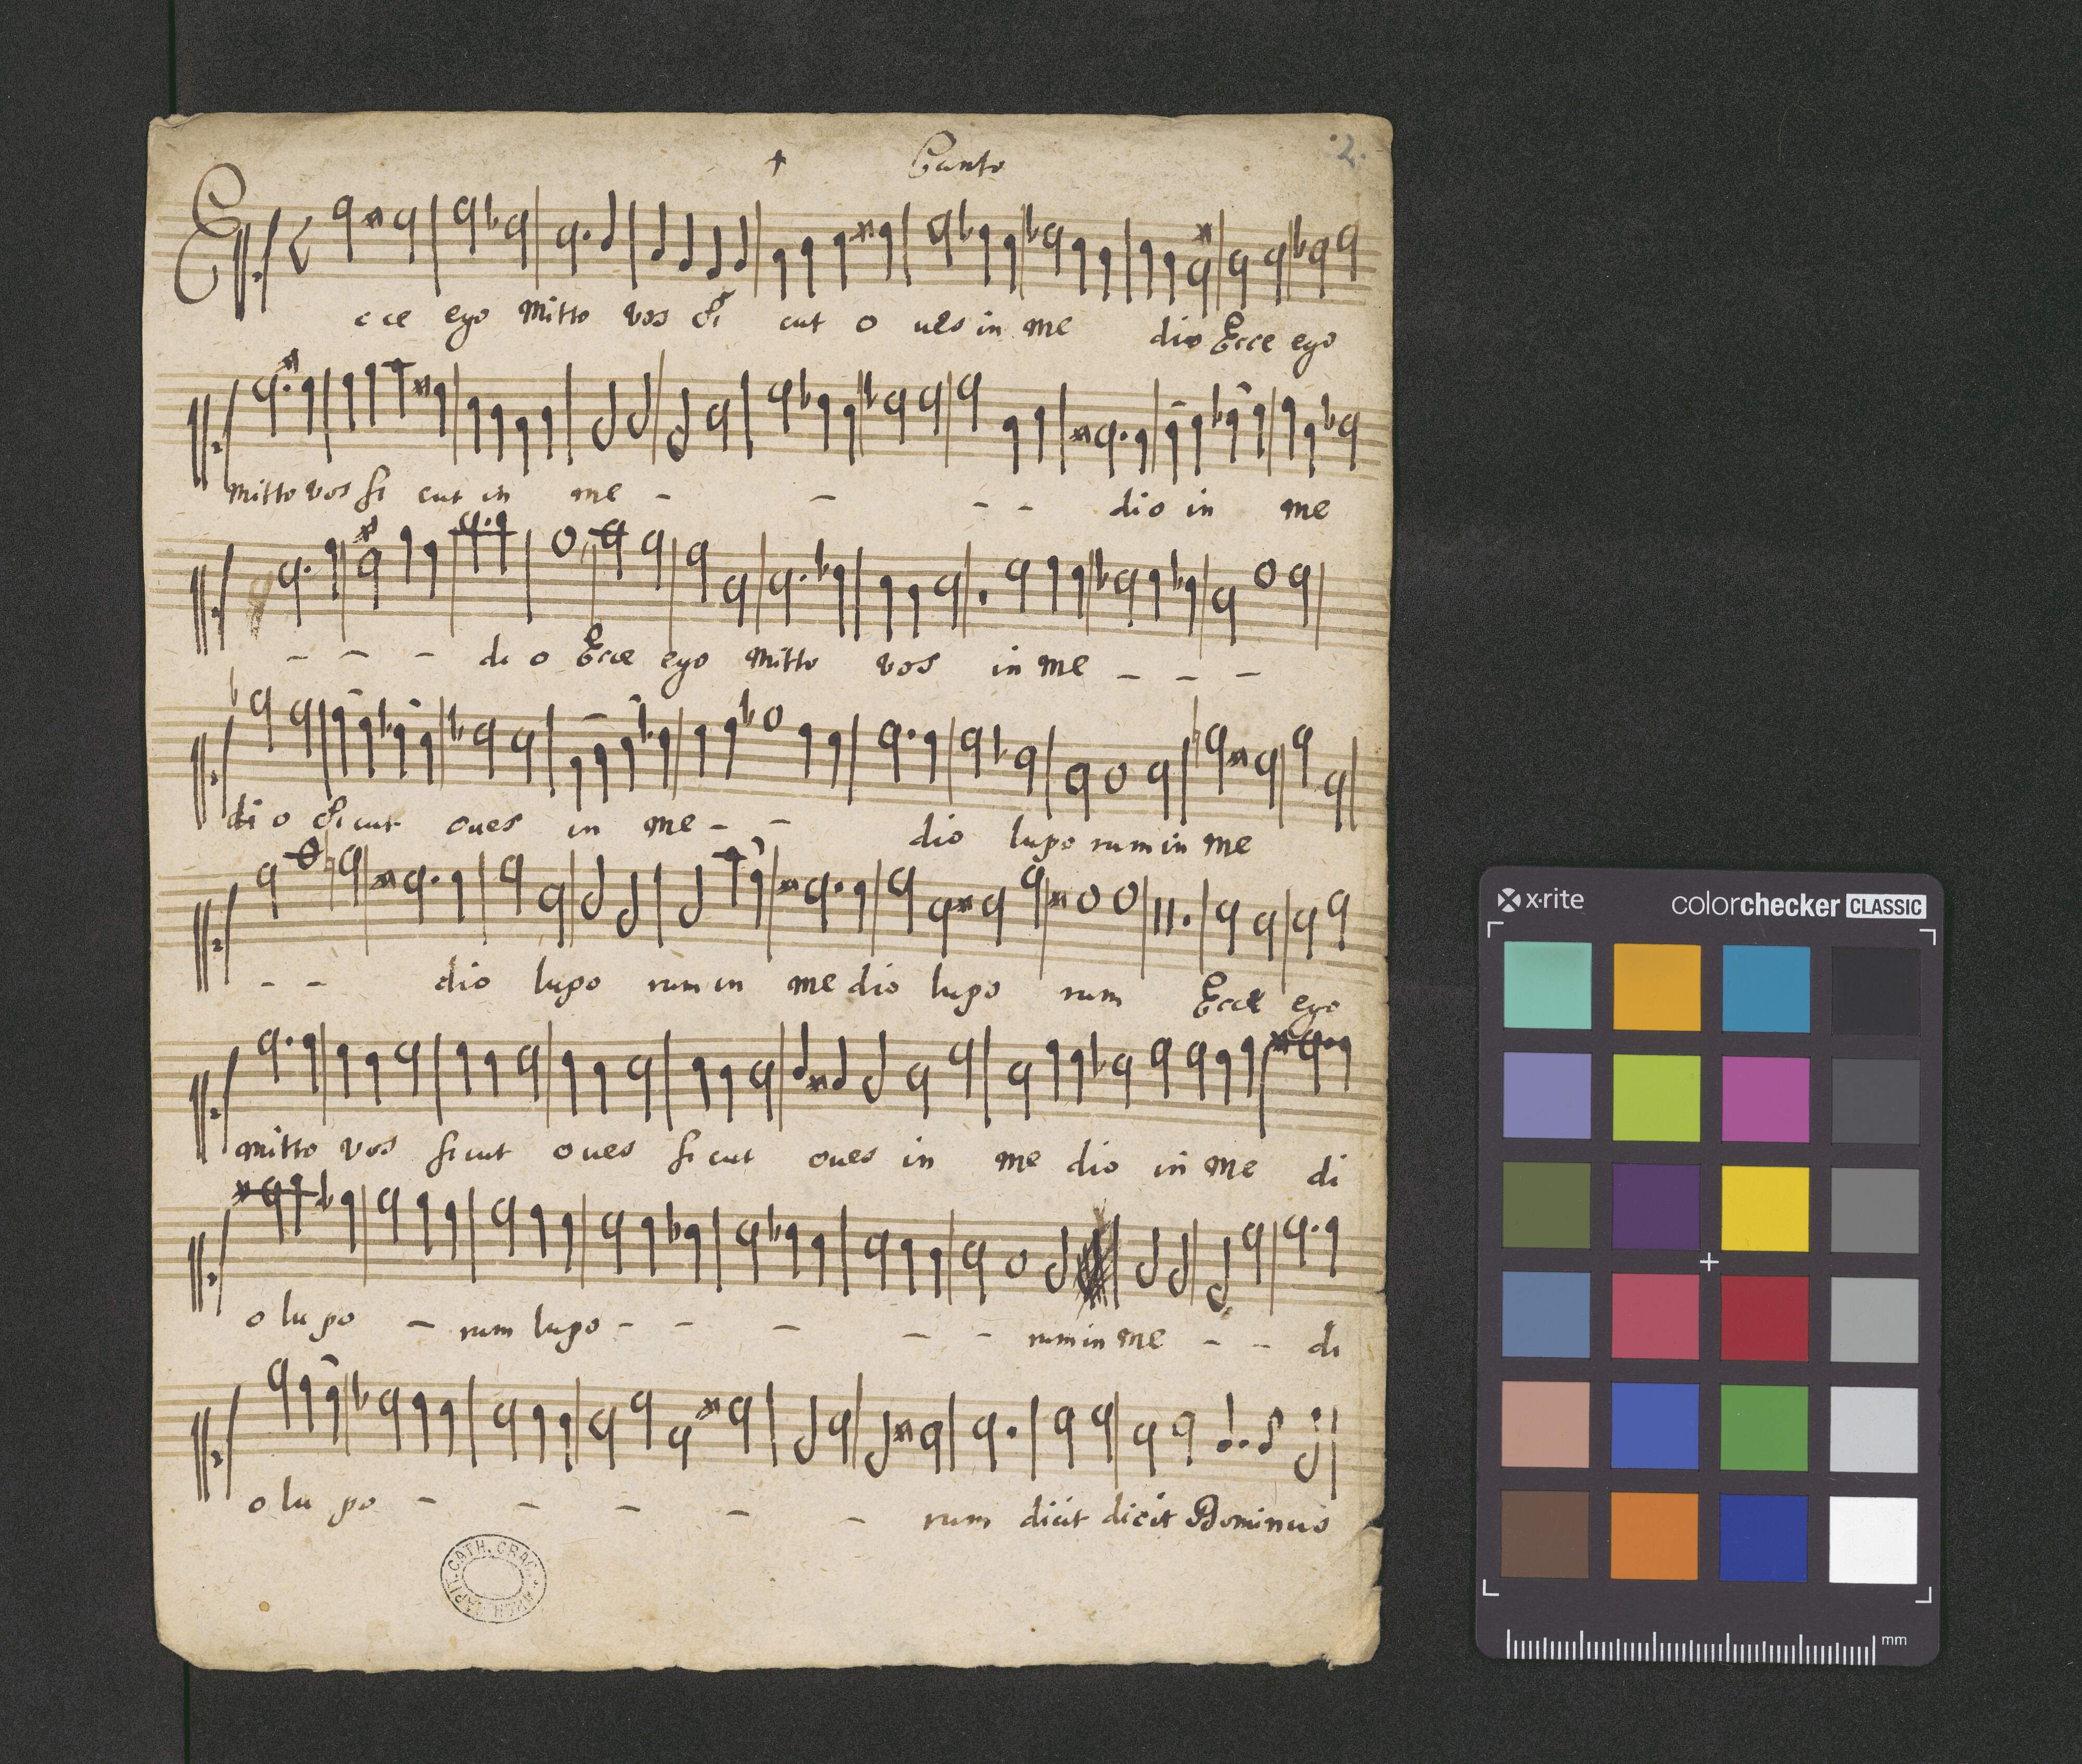 Canto
.2.
Ecce ego mitto vos si cut o ues in me dio Ecce ego
mitto vos si cut in me - - - - dio in me
- - - di o Ecce ego mitto vos in me - - -
di o sicut oues in me - - dio lupo rum in me
- - dio lupo rum in me dio lupo rum Ecce ego
mitto vos sicut o ues si cut oues in me dio in me di
o lu po - rum lupo - - - - - rum in me - - di
o lu po - - - - - rum dicit dicit Dominus
CATH. CRAC
x-rite
colorchecker CLASSIC
mm